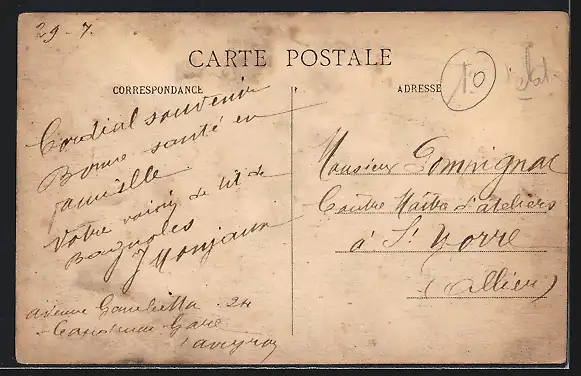 29-7.
CARTE POSTALE
CORRESPONDANCE
ADRESSE
10
Cordial souvenir
Bonne santé en
famille
Votre voisin de lit de
Bagnoles
Monsieur
Contre Maître d'ateliers
à St Yorre
(Allier)
avenue Gambetta 24
Gare
Aveyron